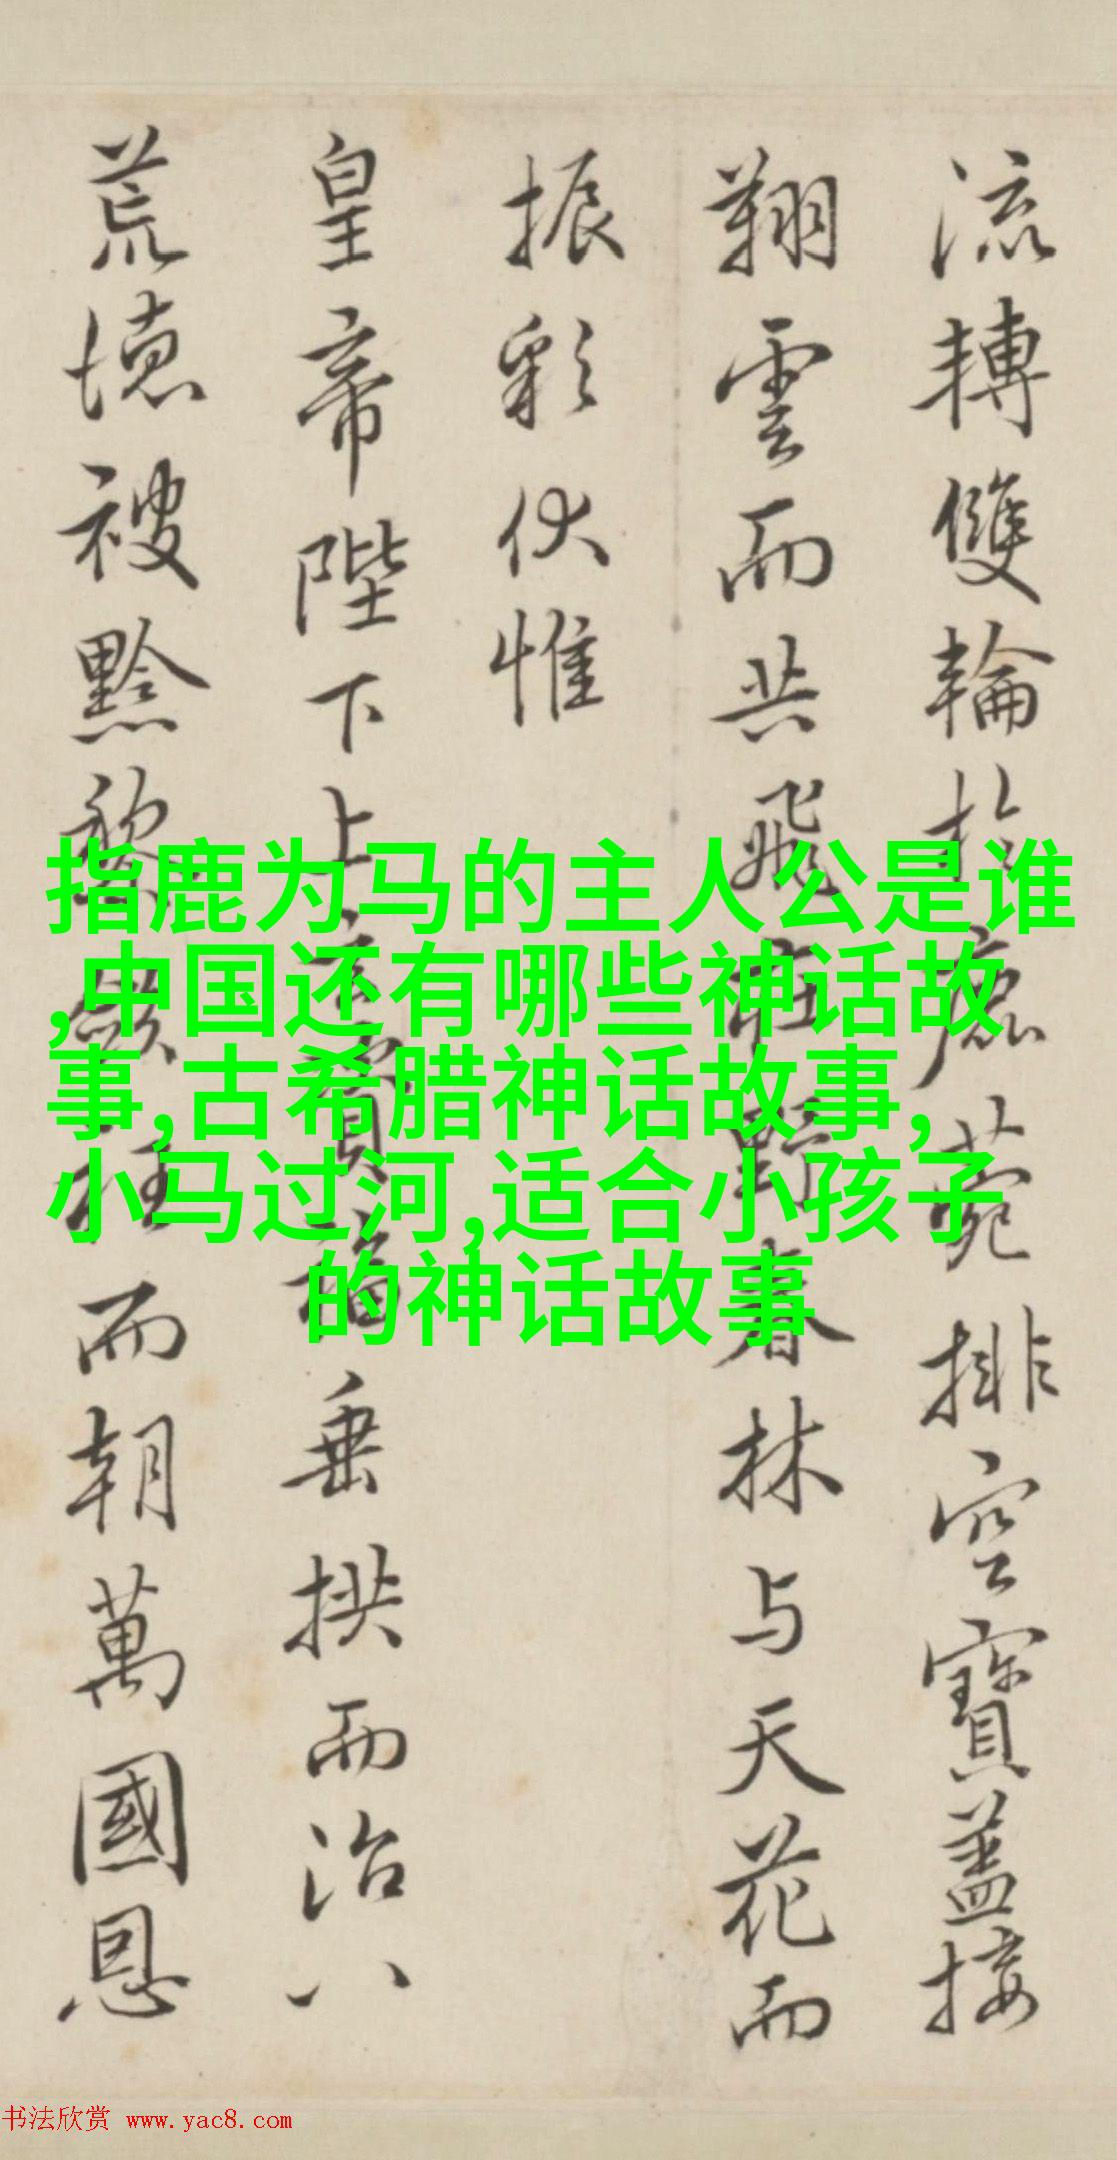 流轉雙輪於鹿菀排空寶蓋接
翔雲而共飛莊野春林与天花而
振彩伏惟
皇帝陛下上玄資福垂拱而治八
荒德被黔黎斂衽而朝萬國恩
指鹿为马的主人公是谁
,中国还有哪些神话故
事,古希腊神话故事,
小马过河,适合小孩子
的神话故事
书法欣赏 www.yac8.com